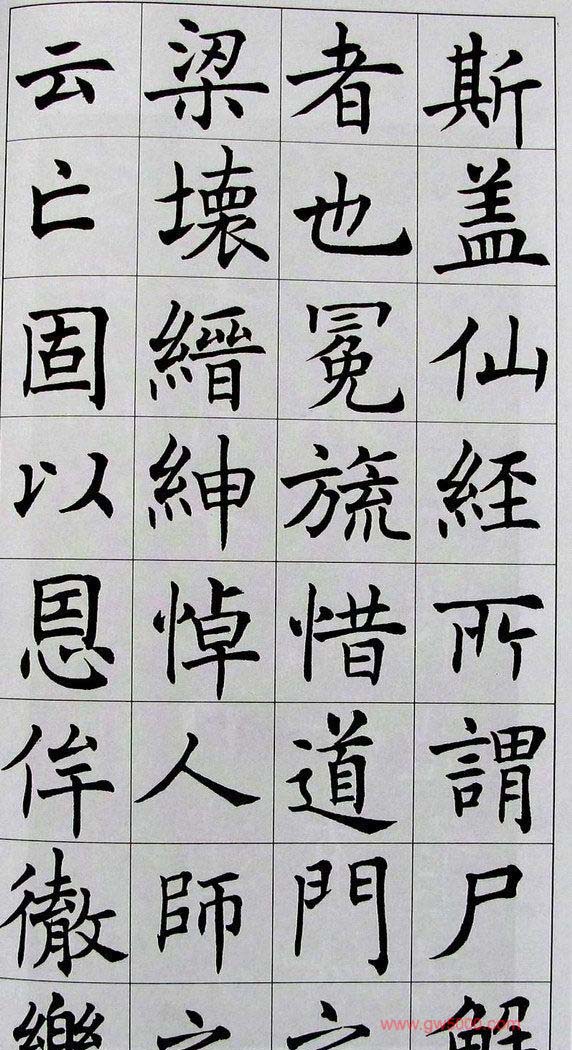 斯盖仙經所謂尸解
者也冕旒惜道門之
梁壞縉紳悼人師之
云亡固以恩侔徹樂